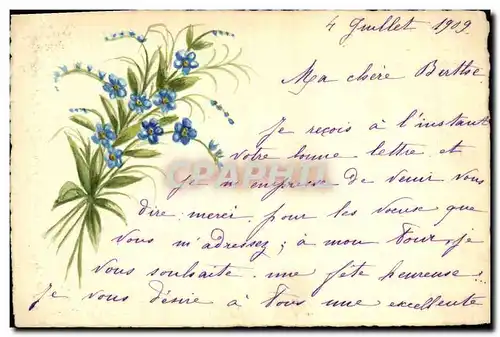 4 Juillet 1909
Ma chère Berthe
Je reçois à l'instant
votre bonne lettre et
je m'empresse de venir vous
dire merci pour les voeux que
vous m'adressez ; à mon Tour je
vous souhaite une fête heureuse :
Je vous désire à Tous une excellente
CPAPHIL